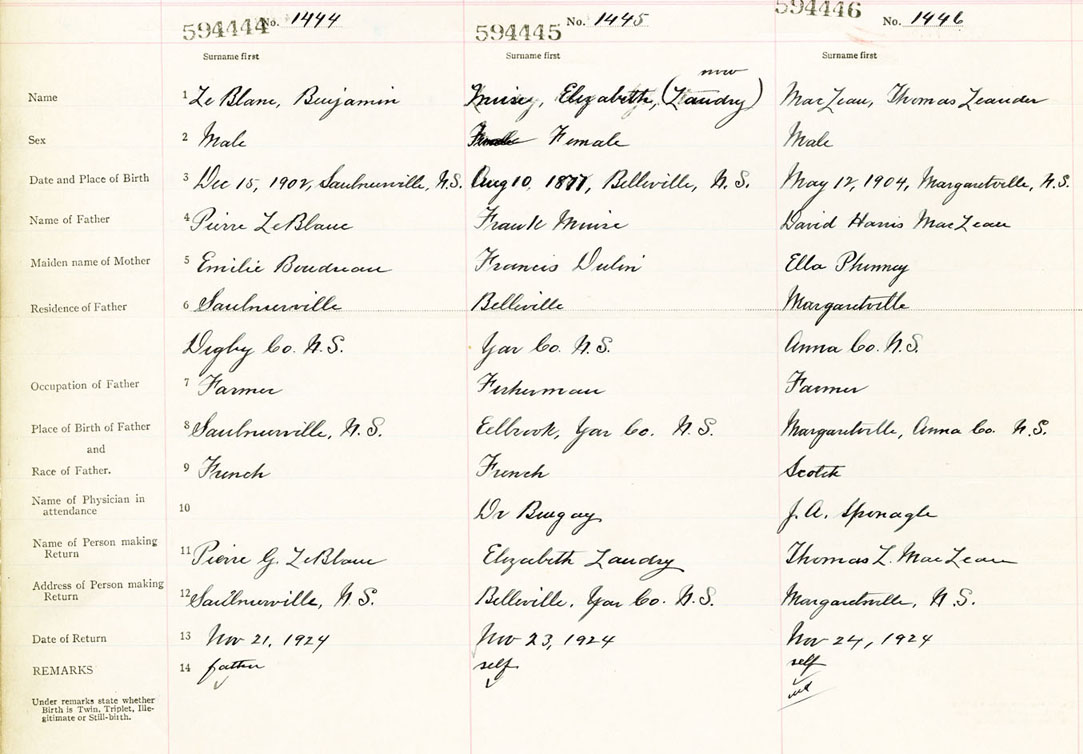 594444 No. 1444 594445 No. 1445 594446 No. 1446
Surname first Surname first Surname first
now
Name 1 Le Blanc, Benjamin Muise, Elizabeth, (Landry) MacLean, Thomas Leander
Sex 2 Male Female Male
Date and Place of Birth 3 Dec 15, 1902, Saulnierville, N.S. Aug 10, 1877, Belleville, N.S. May 12, 1904, Margaretville, N.S.
Name of Father 4 Pierre LeBlanc Frank Muise David Harris MacLean
Maiden name of Mother 5 Emilie Boudreau Francis Dulin Ella Phinney
Residence of Father 6 Saulnierville Belleville Margaretville
Digby Co. N.S. Yar Co. N.S. Anna Co. N.S.
Occupation of Father 7 Farmer Fisherman Farmer
Place of Birth of Father 8 Saulnierville, N.S. Eelbrook, Yar Co. N.S. Margaretville, Anna Co. N.S.
and
Race of Father. 9 French French Scotch
Name of Physician in
attendance 10 Dr J.A. Sponagle
Name of Person making
Return 11 Pierre G. LeBlanc Elizabeth Landry Thomas L. MacLean
Address of Person making
Return 12 Saulnierville, N.S. Belleville, Yar Co. N.S. Margaretville, N.S.
Date of Return 13 Nov 21, 1924 Nov 23, 1924 Nov 24, 1924
REMARKS 14 father self self
Under remarks state whether
Birth is Twin, Triplet, Ille-
gitimate or Still-birth.